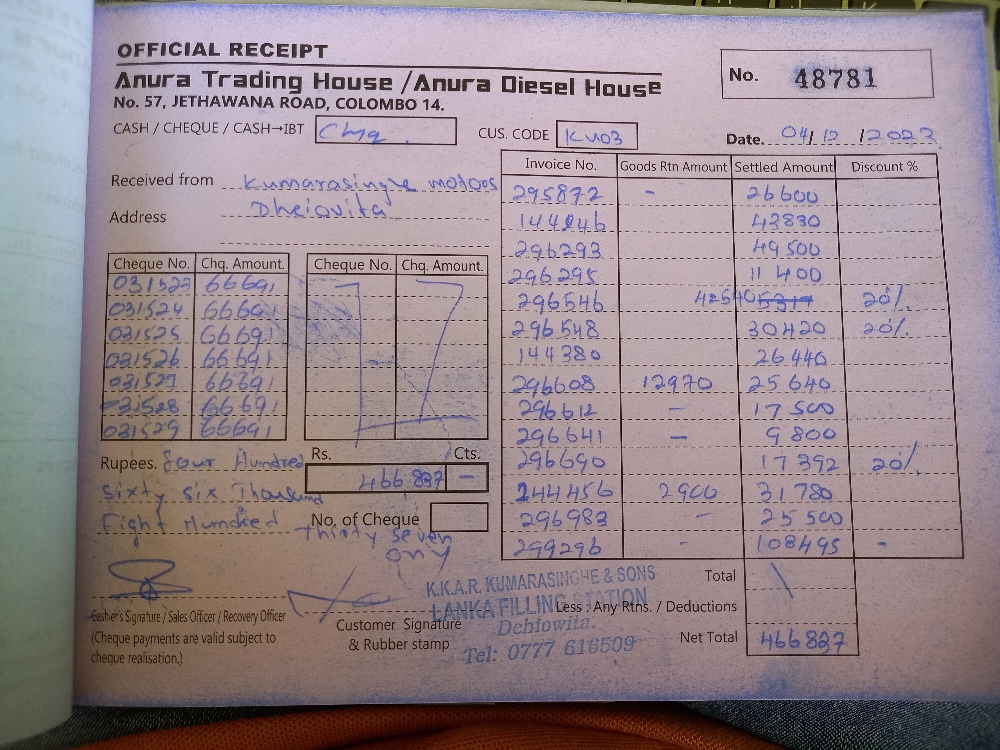 OFFICIAL RECEIPT
Anura Trading House /Anura Diesel House
No. 57, JETHAWANA ROAD, COLOMBO 14.
No. 48781
CASH / CHEQUE / CASH→IBT Chq.
CUS. CODE KU03
Date. 04/12/2023
Received from Kumarasingle motoos
Address Dheiovita
Cheque No. Chq. Amount.
031523 66691
031524 66691
031525 66691
031526 66691
031527 66691
031528 66691
031529 66691
Cheque No. Chq. Amount.
Rs. Cts.
466 837 -
Rupees. Four Hundred
sixty six Thousand
Eight Hundred Thirty seven
only
No. of Cheque
Invoice No. Goods Rtn Amount Settled Amount Discount %
295872 - 26600
144246 43830
296293 49500
296295 11400
296546 42540 5317 20%
296548 30420 20%
144380 26440
296608 12970 25640
296612 - 17500
296641 - 9800
296690 17392 20%
244456 2900 31780
296983 - 25500
299296 - 108495 -
Total
Less : Any Rtns. / Deductions
Net Total 466837
Cashier's Signature / Sales Officer / Recovery Officer
(Cheque payments are valid subject to
cheque realisation.)
Customer Signature
& Rubber stamp
K.K.A.R. KUMARASINGHE & SONS
LANKA FILLING STATION
Dehiowita.
Tel: 0777 616509